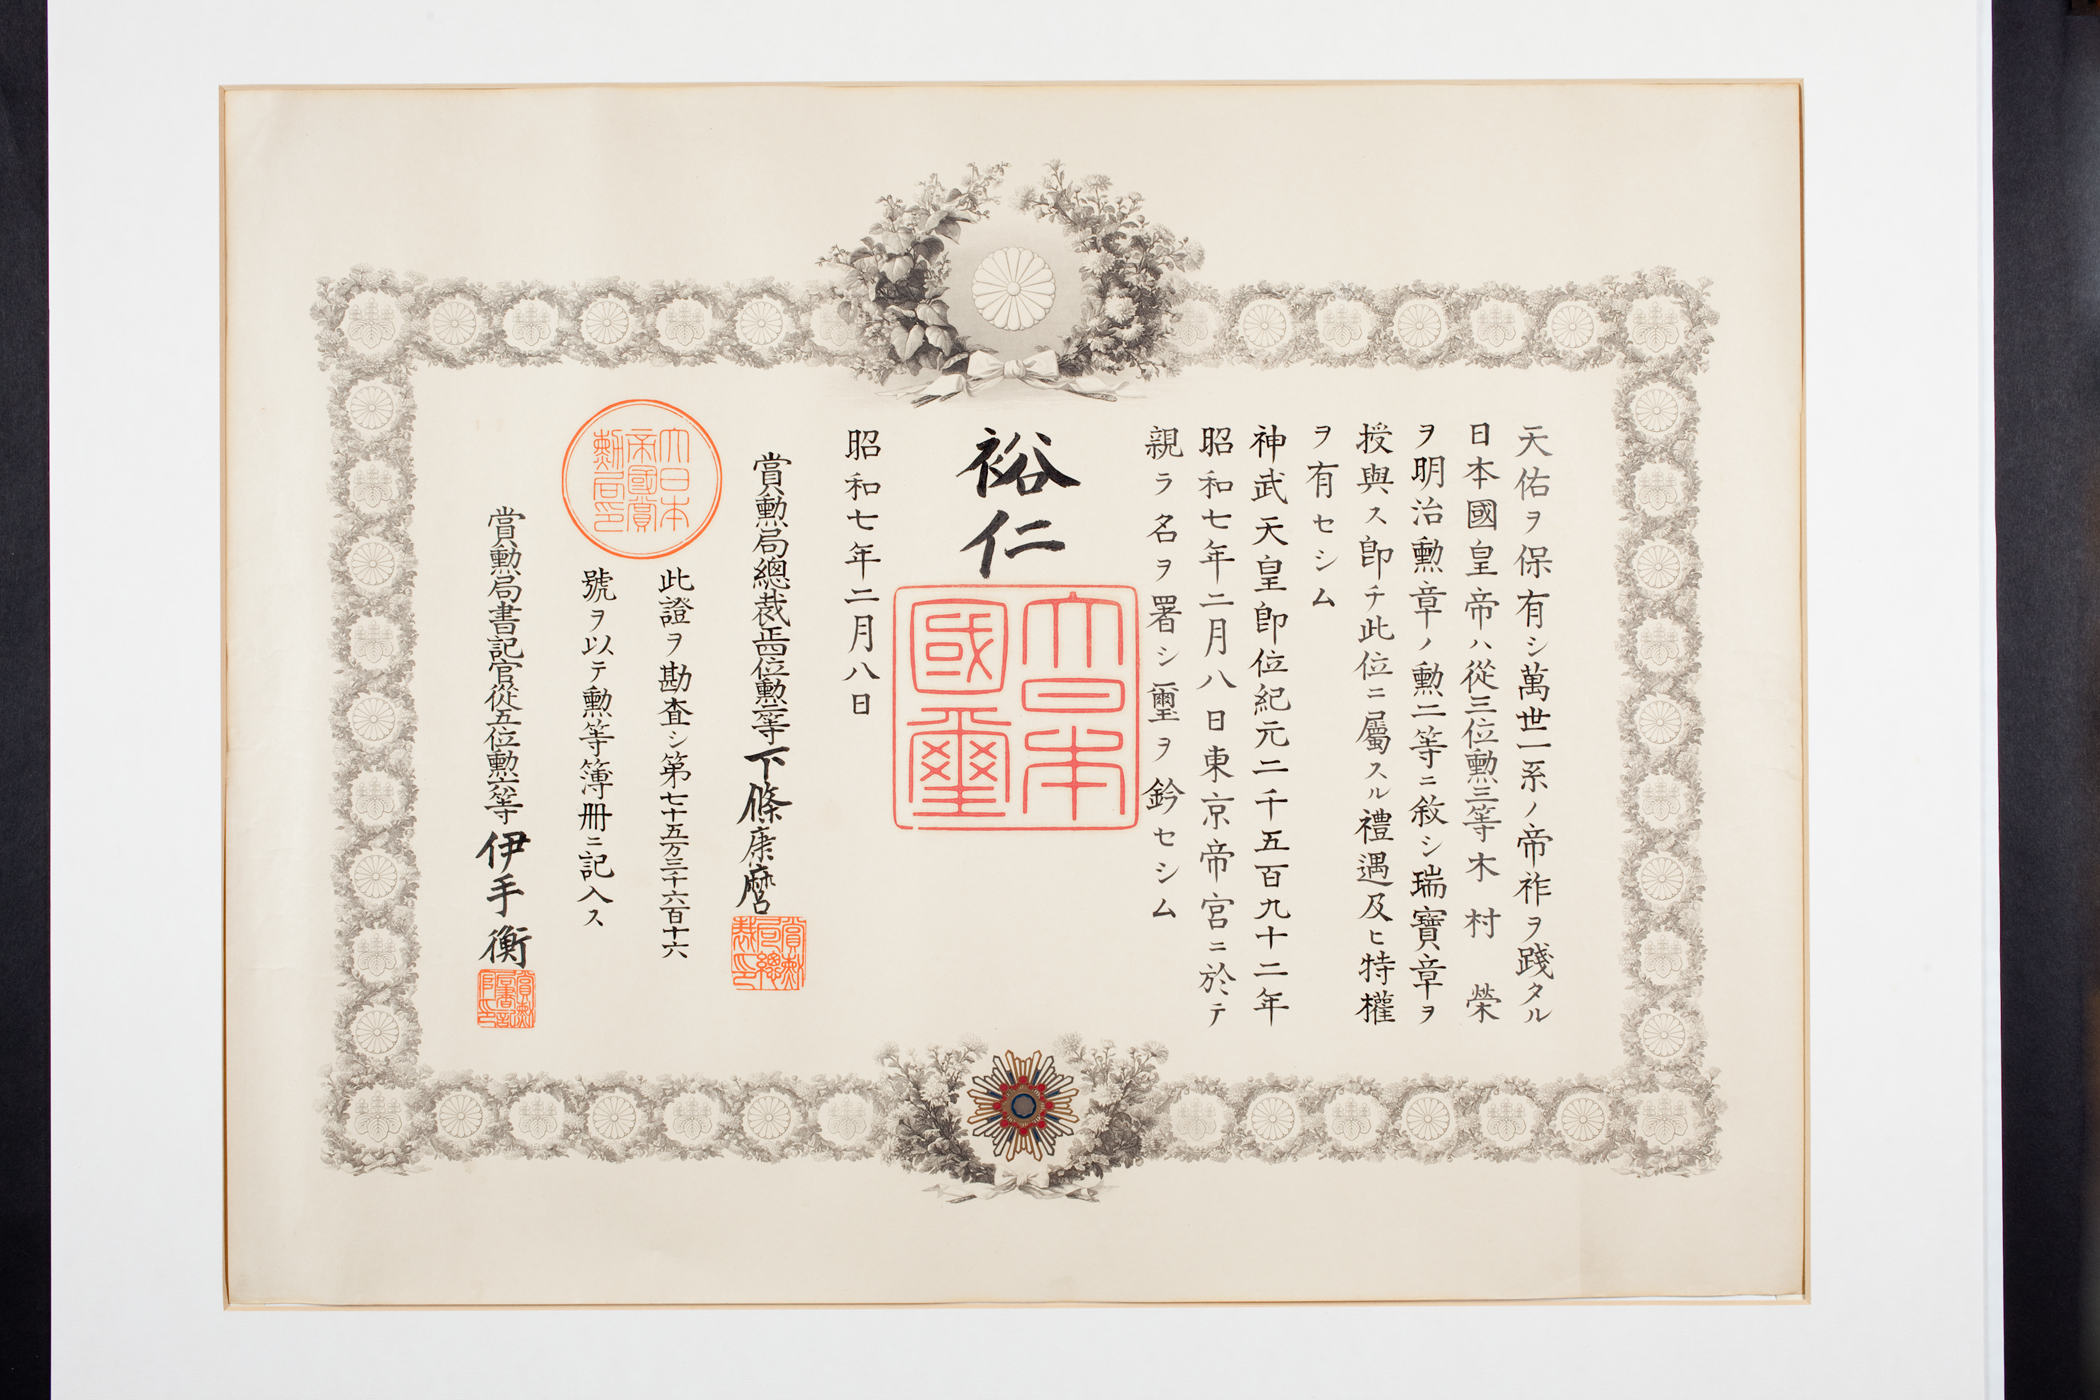 天佑ヲ保有シ萬世一系ノ帝祚ヲ踐タル
日本國皇帝ハ從三位勲三等木村榮
ヲ明治勲章ノ勲二等ニ敘シ瑞寶章ヲ
授與ス即チ此位ニ屬スル禮遇及ヒ特權
ヲ有セシム
神武天皇即位紀元二千五百九十二年
昭和七年二月八日東京帝宮ニ於テ
親ラ名ヲ署シ璽ヲ鈐セシム
裕仁
大日本國璽
昭和七年二月八日
賞勲局總裁正四位勲二等下條康麿
賞勲局總裁印
此證ヲ勘査シ第七十五万三千六百十六
號ヲ以テ勲等簿册ニ記入ス
大日本帝國賞勲局印
賞勲局書記官從五位勲六等伊手衡
賞勲局書記官印